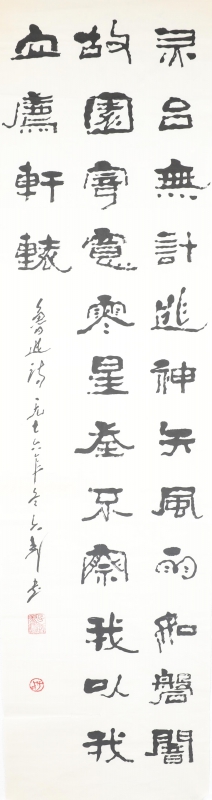 灵台無計逃神矢風雨如磐闇
故園寄意寒星荃不察我以我
血薦軒轅
魯迅詩 一九七六年冬 書